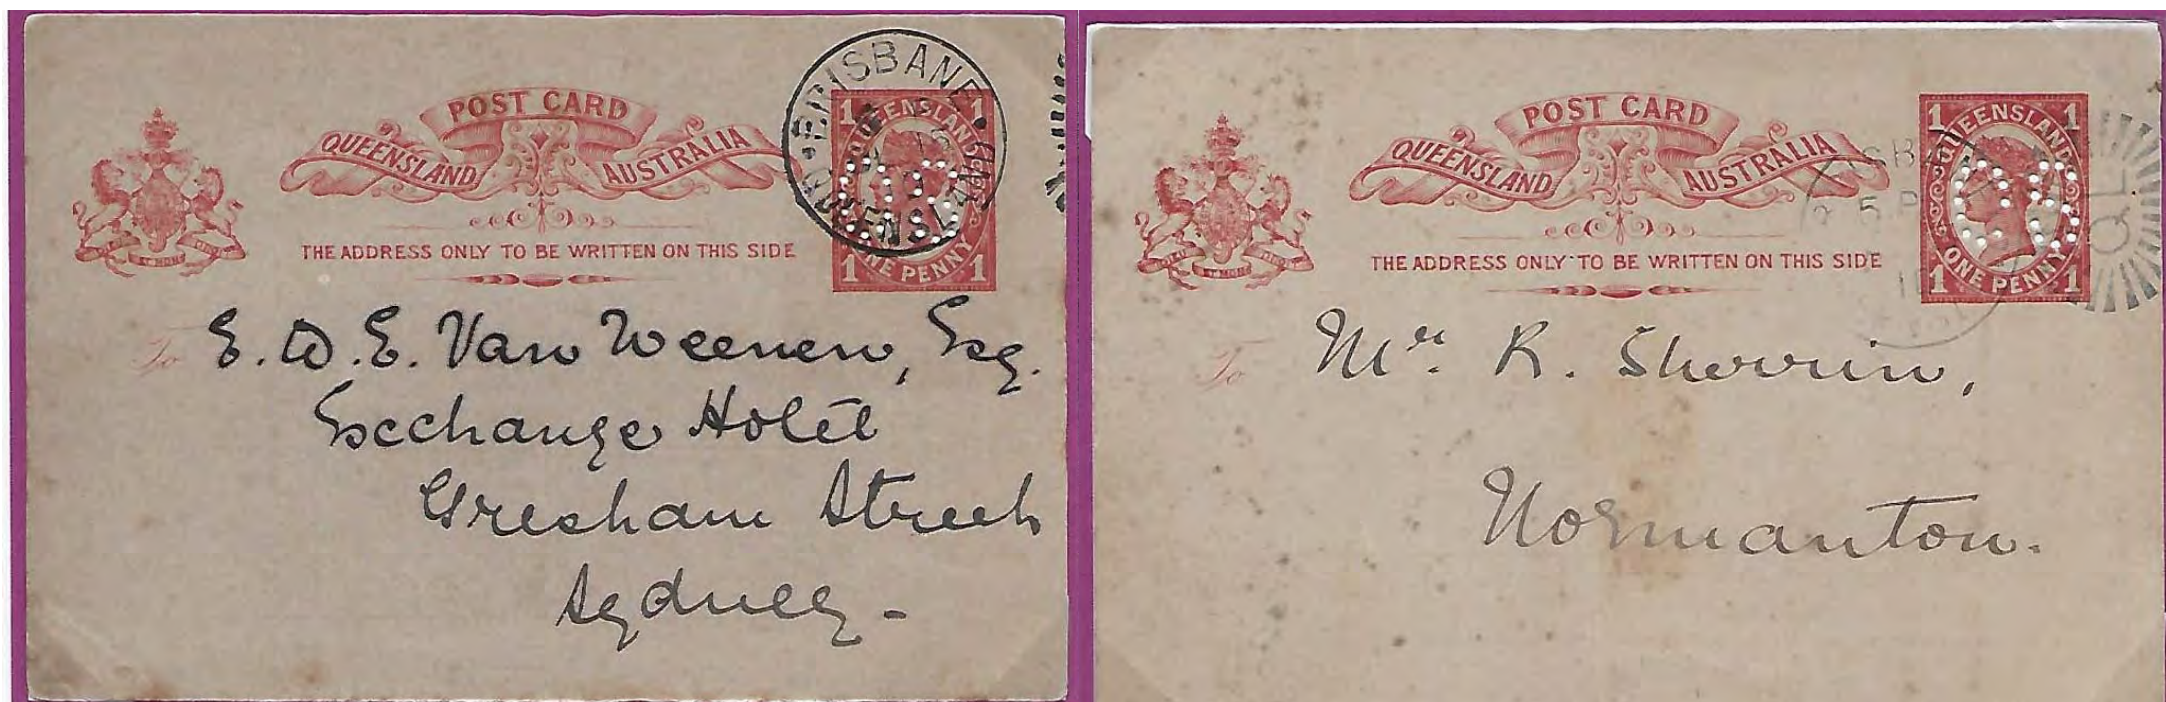 POST CARD
QUEENSLAND AUSTRALIA
THE ADDRESS ONLY TO BE WRITTEN ON THIS SIDE
1 QUEENSLAND 1
1 ONE PENNY 1
BRISBANE
QUEENSLAND
To E. W. E. Van Weenen, Esq.
Exchange Hotel
Gresham Street
Sydney -
POST CARD
QUEENSLAND AUSTRALIA
THE ADDRESS ONLY TO BE WRITTEN ON THIS SIDE
1 QUEENSLAND 1
1 ONE PENNY 1
5 P
QL
To Mr. R. Sherrin,
Normanton.